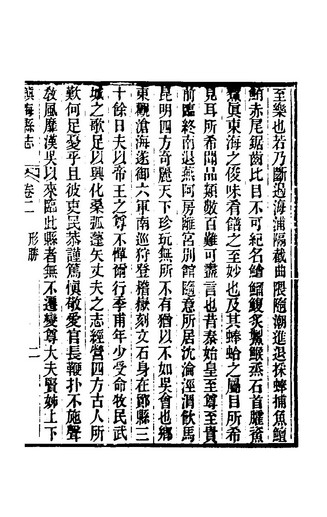 至樂也若乃斷遏海浦隔截曲隈隨潮進退採蜯捕魚鱣
鮪赤尾鋸齒比目不可紀名鱠鰡鰒炙鯸蒸石首臛鯊
鮆真東海之俊味肴饍之至妙也及其蜯蛤之屬目所希
見耳所希聞品類數百難可盡言也昔秦始皇至尊至貴
前臨終南退燕阿房離宮別館隨意所居沈淪涇渭飲馬
昆明四方奇麗天下珍玩無所不有猶以不如吳會也鄉
東觀滄海遂御六軍南巡狩登稽嶽刻文石身在鄮縣三
十餘日夫以帝王之尊不憚爾行季甫年少受命牧民武
城之歌足以興化桑弧蓬矢丈夫之志經營四方古人所
歎何足憂乎且彼吏民恭謹篤慎敬愛官長鞭扑不施聲
敎風靡漢吳以來臨此縣者無不遷變尊大夫賢姊上下
鎮海縣志 卷二 形勝 二